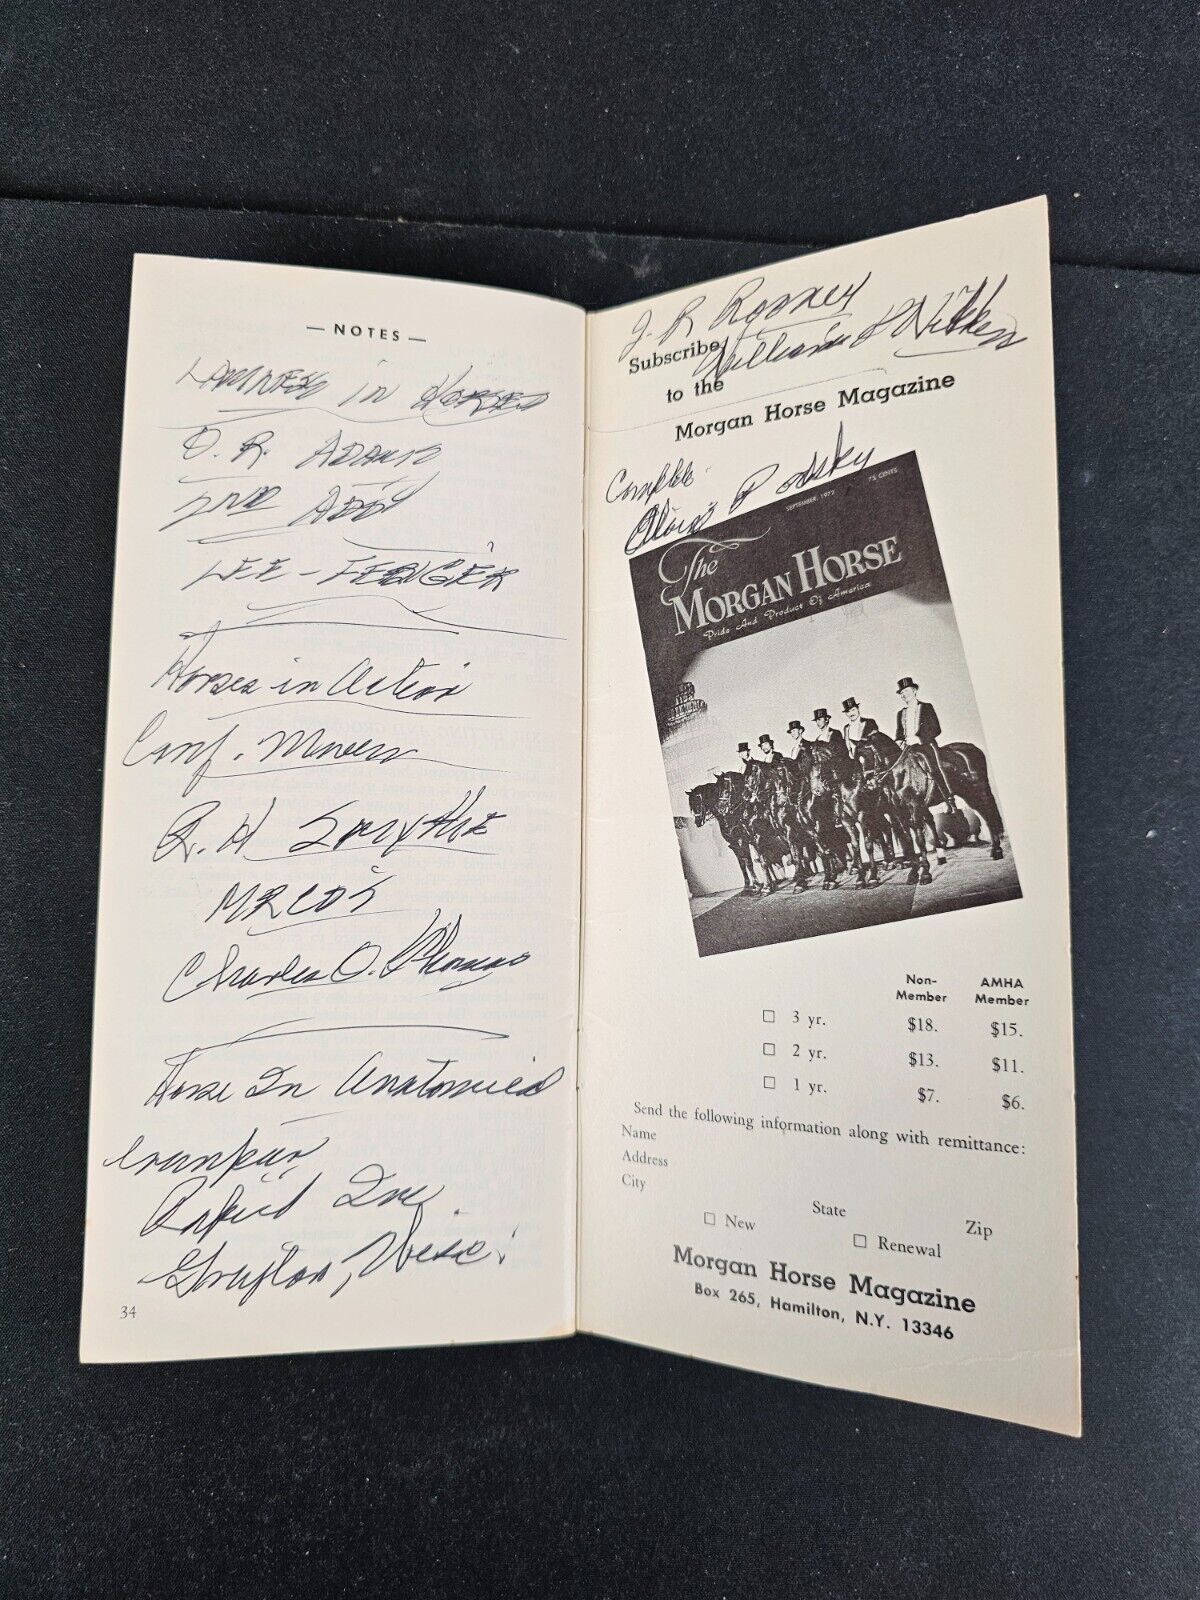 — NOTES —
LAMNESS in HORSES
O. R. ADAMS
2ND
LEE - FEBIGER
Horses in Action
Conf.
R. H SMYTHE
MRCVS
Charles C. Thomas
Horse In Anatomical
Rapid Inc.
Grafton, Wisc.
34
J. R Rooney
William &
Subscribe
to the
Morgan Horse Magazine
Complete
Alois Podsky
SEPTEMBER, 1972 75 CENTS
The
MORGAN HORSE
Pride And Product Of America
Non-Member AMHA Member
☐ 3 yr. $18. $15.
☐ 2 yr. $13. $11.
☐ 1 yr. $7. $6.
Send the following information along with remittance:
Name
Address
City
State Zip
☐ New ☐ Renewal
Morgan Horse Magazine
Box 265, Hamilton, N.Y. 13346